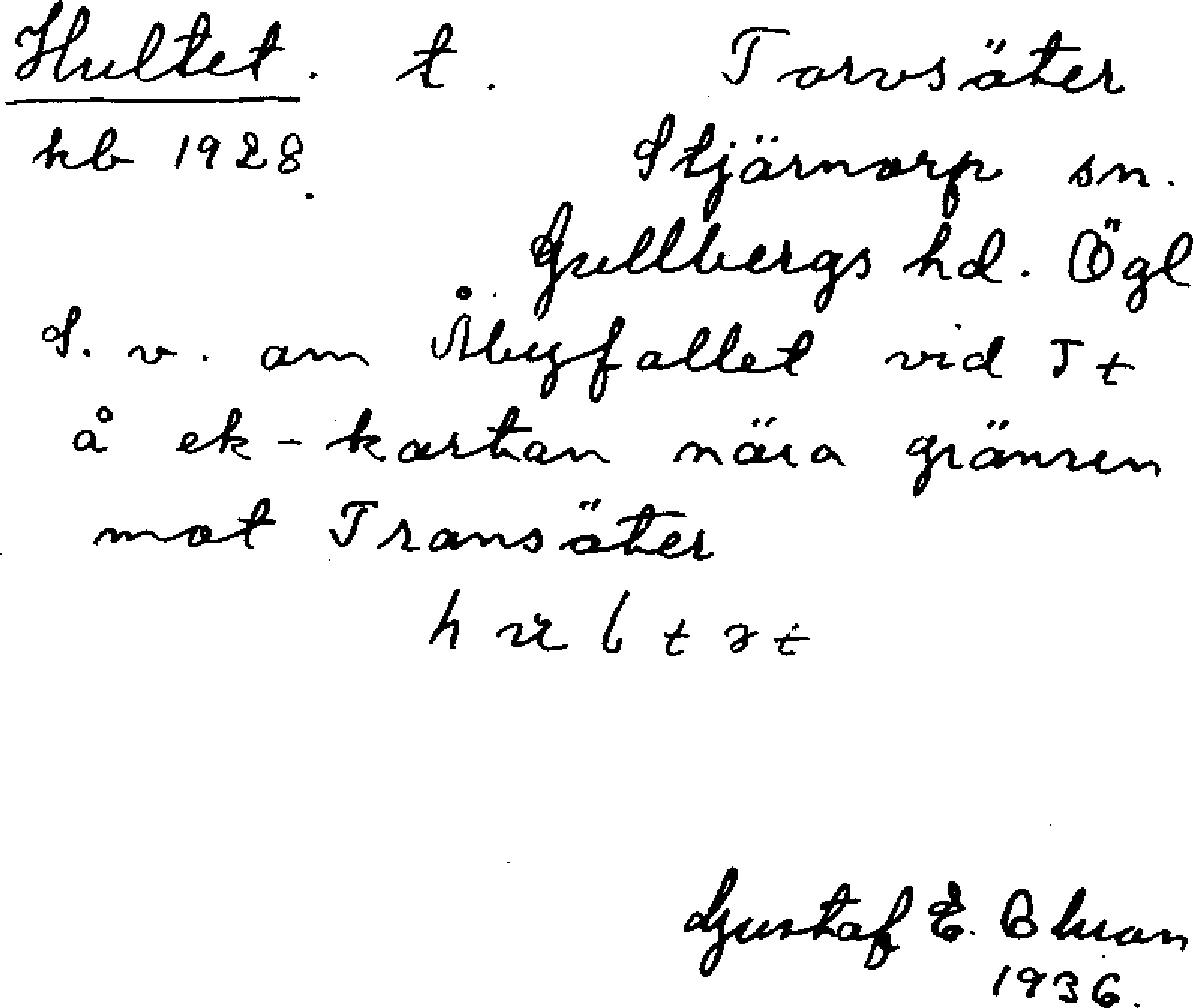 Hultet. t. Torvsäter
kb 1928. Stjärnorp sn.
Gullbergs hd. Ögl
S. v. om Åbyfallet vid Tt
å ek-kartan nära gränsen
mot Transäter
Gustaf E.
1936.